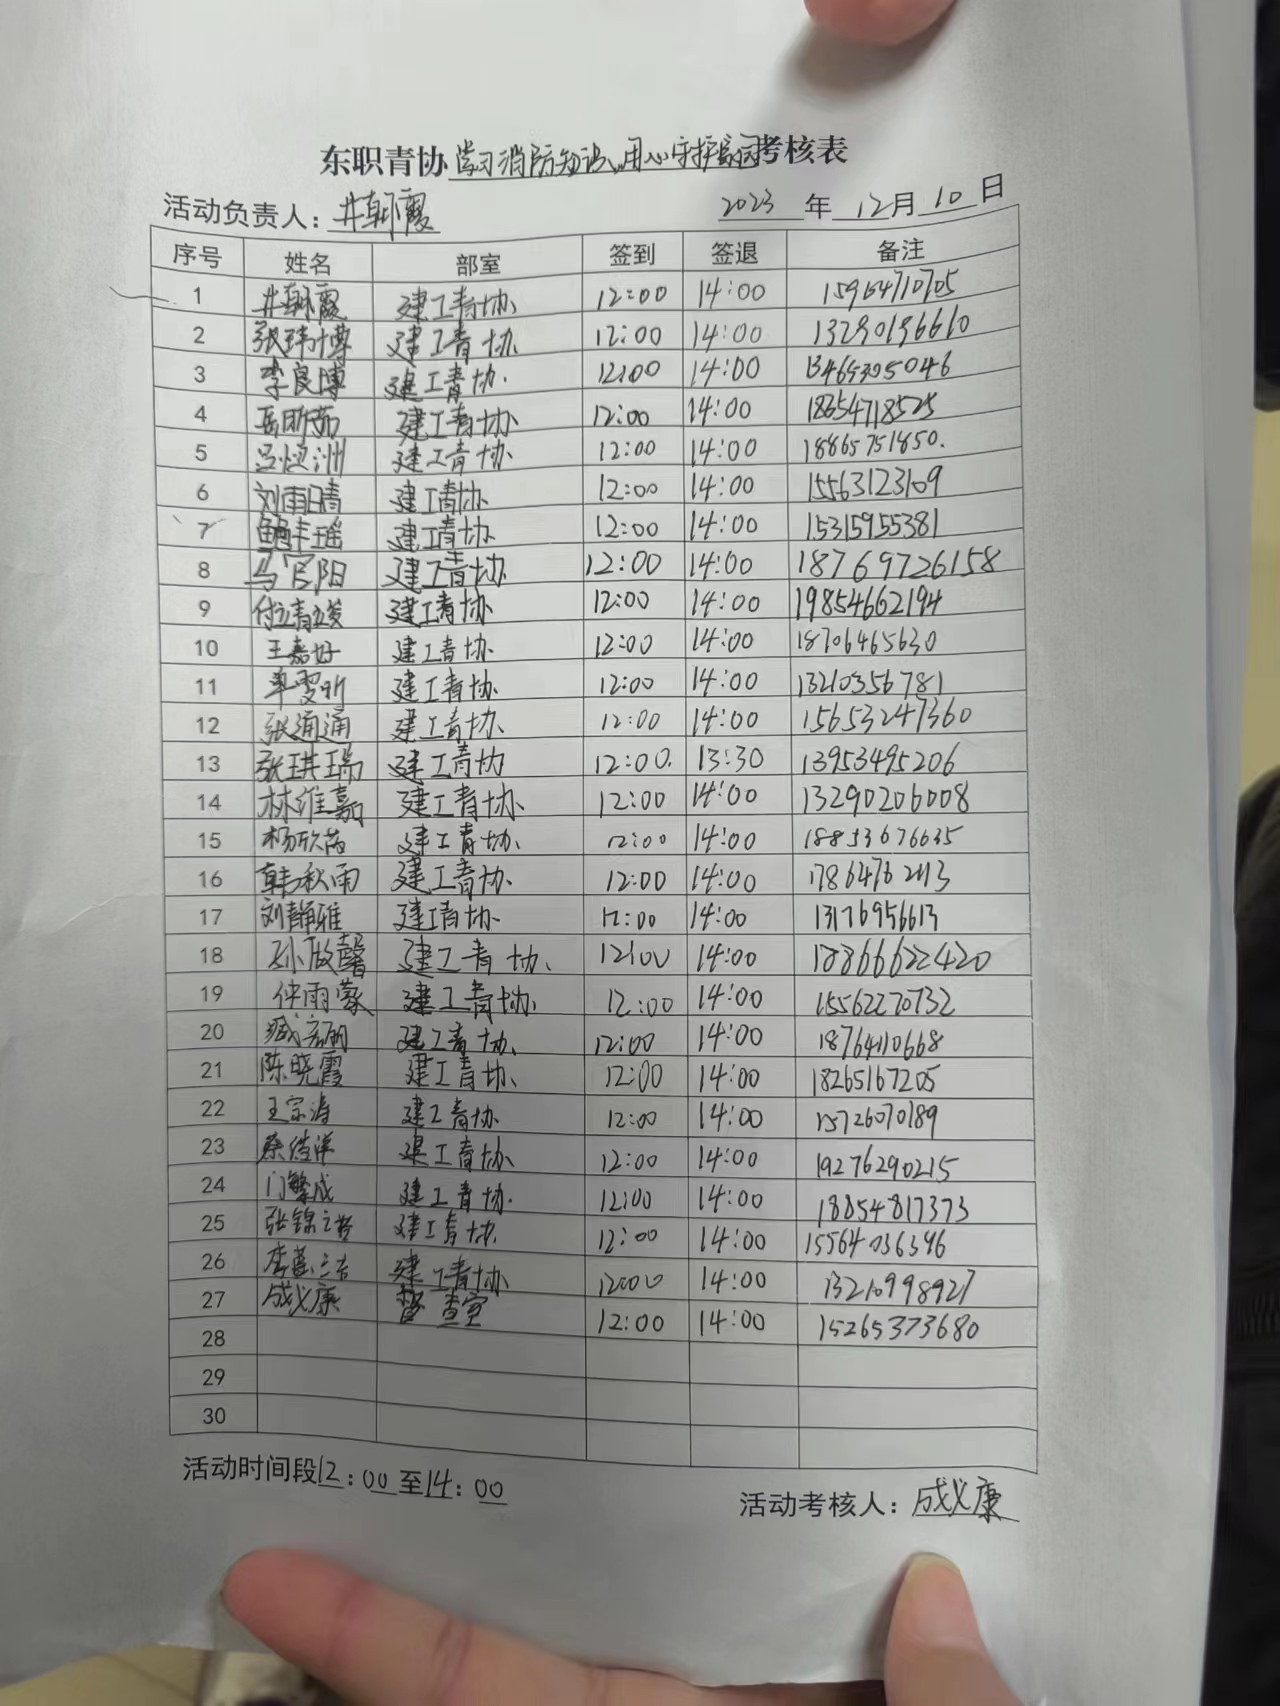 东职青协学习消防知识,用心守护家园考核表
活动负责人：井朝霞 2023 年 12月 10 日
序号 姓名 部室 签到 签退 备注
1 井朝霞 建工青协 12:00 14:00 15964710705
2 张玮博 建工青协 12:00 14:00 13290196610
3 李良博 建工青协. 12:00 14:00 13465305046
4 岳昕茹 建工青协 12:00 14:00 18654718525
5 吕恒洲 建工青协 12:00 14:00 18865751850.
6 刘雨晴 建工青协 12:00 14:00 15563123109
7 鲍丰瑶 建工青协 12:00 14:00 15315955381
8 马官阳 建工青协 12:00 14:00 18769726158
9 12:00 14:00 建工青协 19854662194
10 王嘉好 建工青协 12:00 14:00 18706465630
11 单雯昕 建工青协 12:00 14:00 13210356781
12 张通通 建工青协. 12:00 14:00 15653247360
13 张琪瑞 建工青协 12:00. 13:30 13953495206
14 林维嘉 建工青协 12:00 14:00 13290206008
15 杨欣茹 建工青协. 12:00 14:00 18853676635
16 韩秋雨 建工青协. 12:00 14:00 17864762113
17 刘静雅 建工青协 12:00 14:00 13176956613
18 孙馨 建工青协、 12:00 14:00 18866622420
19 仲雨蒙 建工青协 12:00 14:00 15562270732
20 臧 建工青协、 12:00 14:00 18764110668
21 陈晓霞 建工青协、 12:00 14:00 18265167205
22 王宗涛 建工青协 12:00 14:00 15726070189
23 蔡浩洋 建工青协 12:00 14:00 19276290215
24 门繁成 建工青协. 12:00 14:00 18854817373
25 张锦 建工青协 12:00 14:00 15564036396
26 李 建工青协 12:00 14:00 13210998927
27 成义康 督查室 12:00 14:00 15265373680
28
29
30
活动时间段12：00至14：00
活动考核人：成义康